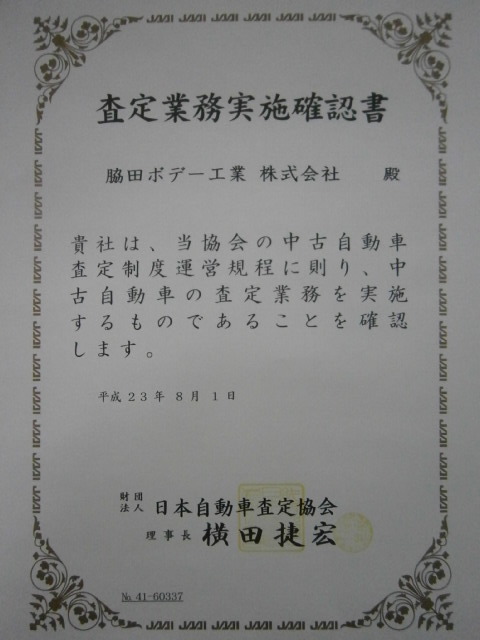 査定業務実施確認書
脇田ボデー工業 株式会社 殿
貴社は、当協会の中古自動車
査定制度運営規程に則り、中
古自動車の査定業務を実施
するものであることを確認
します。
平成23年 8月 1日
財団法人 日本自動車査定協会
理事長 横田捷宏
№ 41-60337